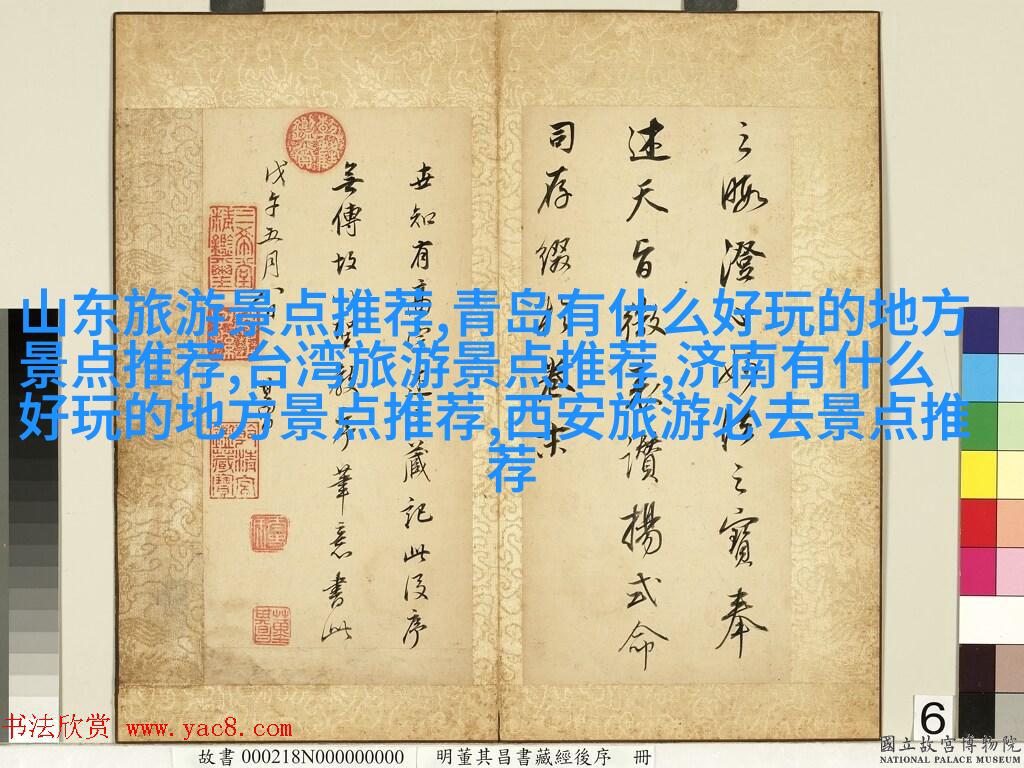 之 澄 之寶奉
述天旨微 讚揚式命
司存綴於卷末
世知有 藏記此後序
無傳故 聖教序筆意書此
戊午五月
山东旅游景点推荐,青岛有什么好玩的地方
景点推荐,台湾旅游景点推荐,济南有什么
好玩的地方景点推荐,西安旅游必去景点推
荐
6
书法欣赏 www.yac8.com
故書 000218N000000000 明董其昌書藏經後序 冊
國立故宮博物院
NATIONAL PALACE MUSEUM